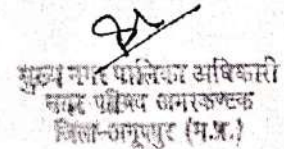 मुख्य नगर पालिका अधिकारी
नगर परिषद अमरकण्टक
जिला-अनूपपुर (म.प्र.)